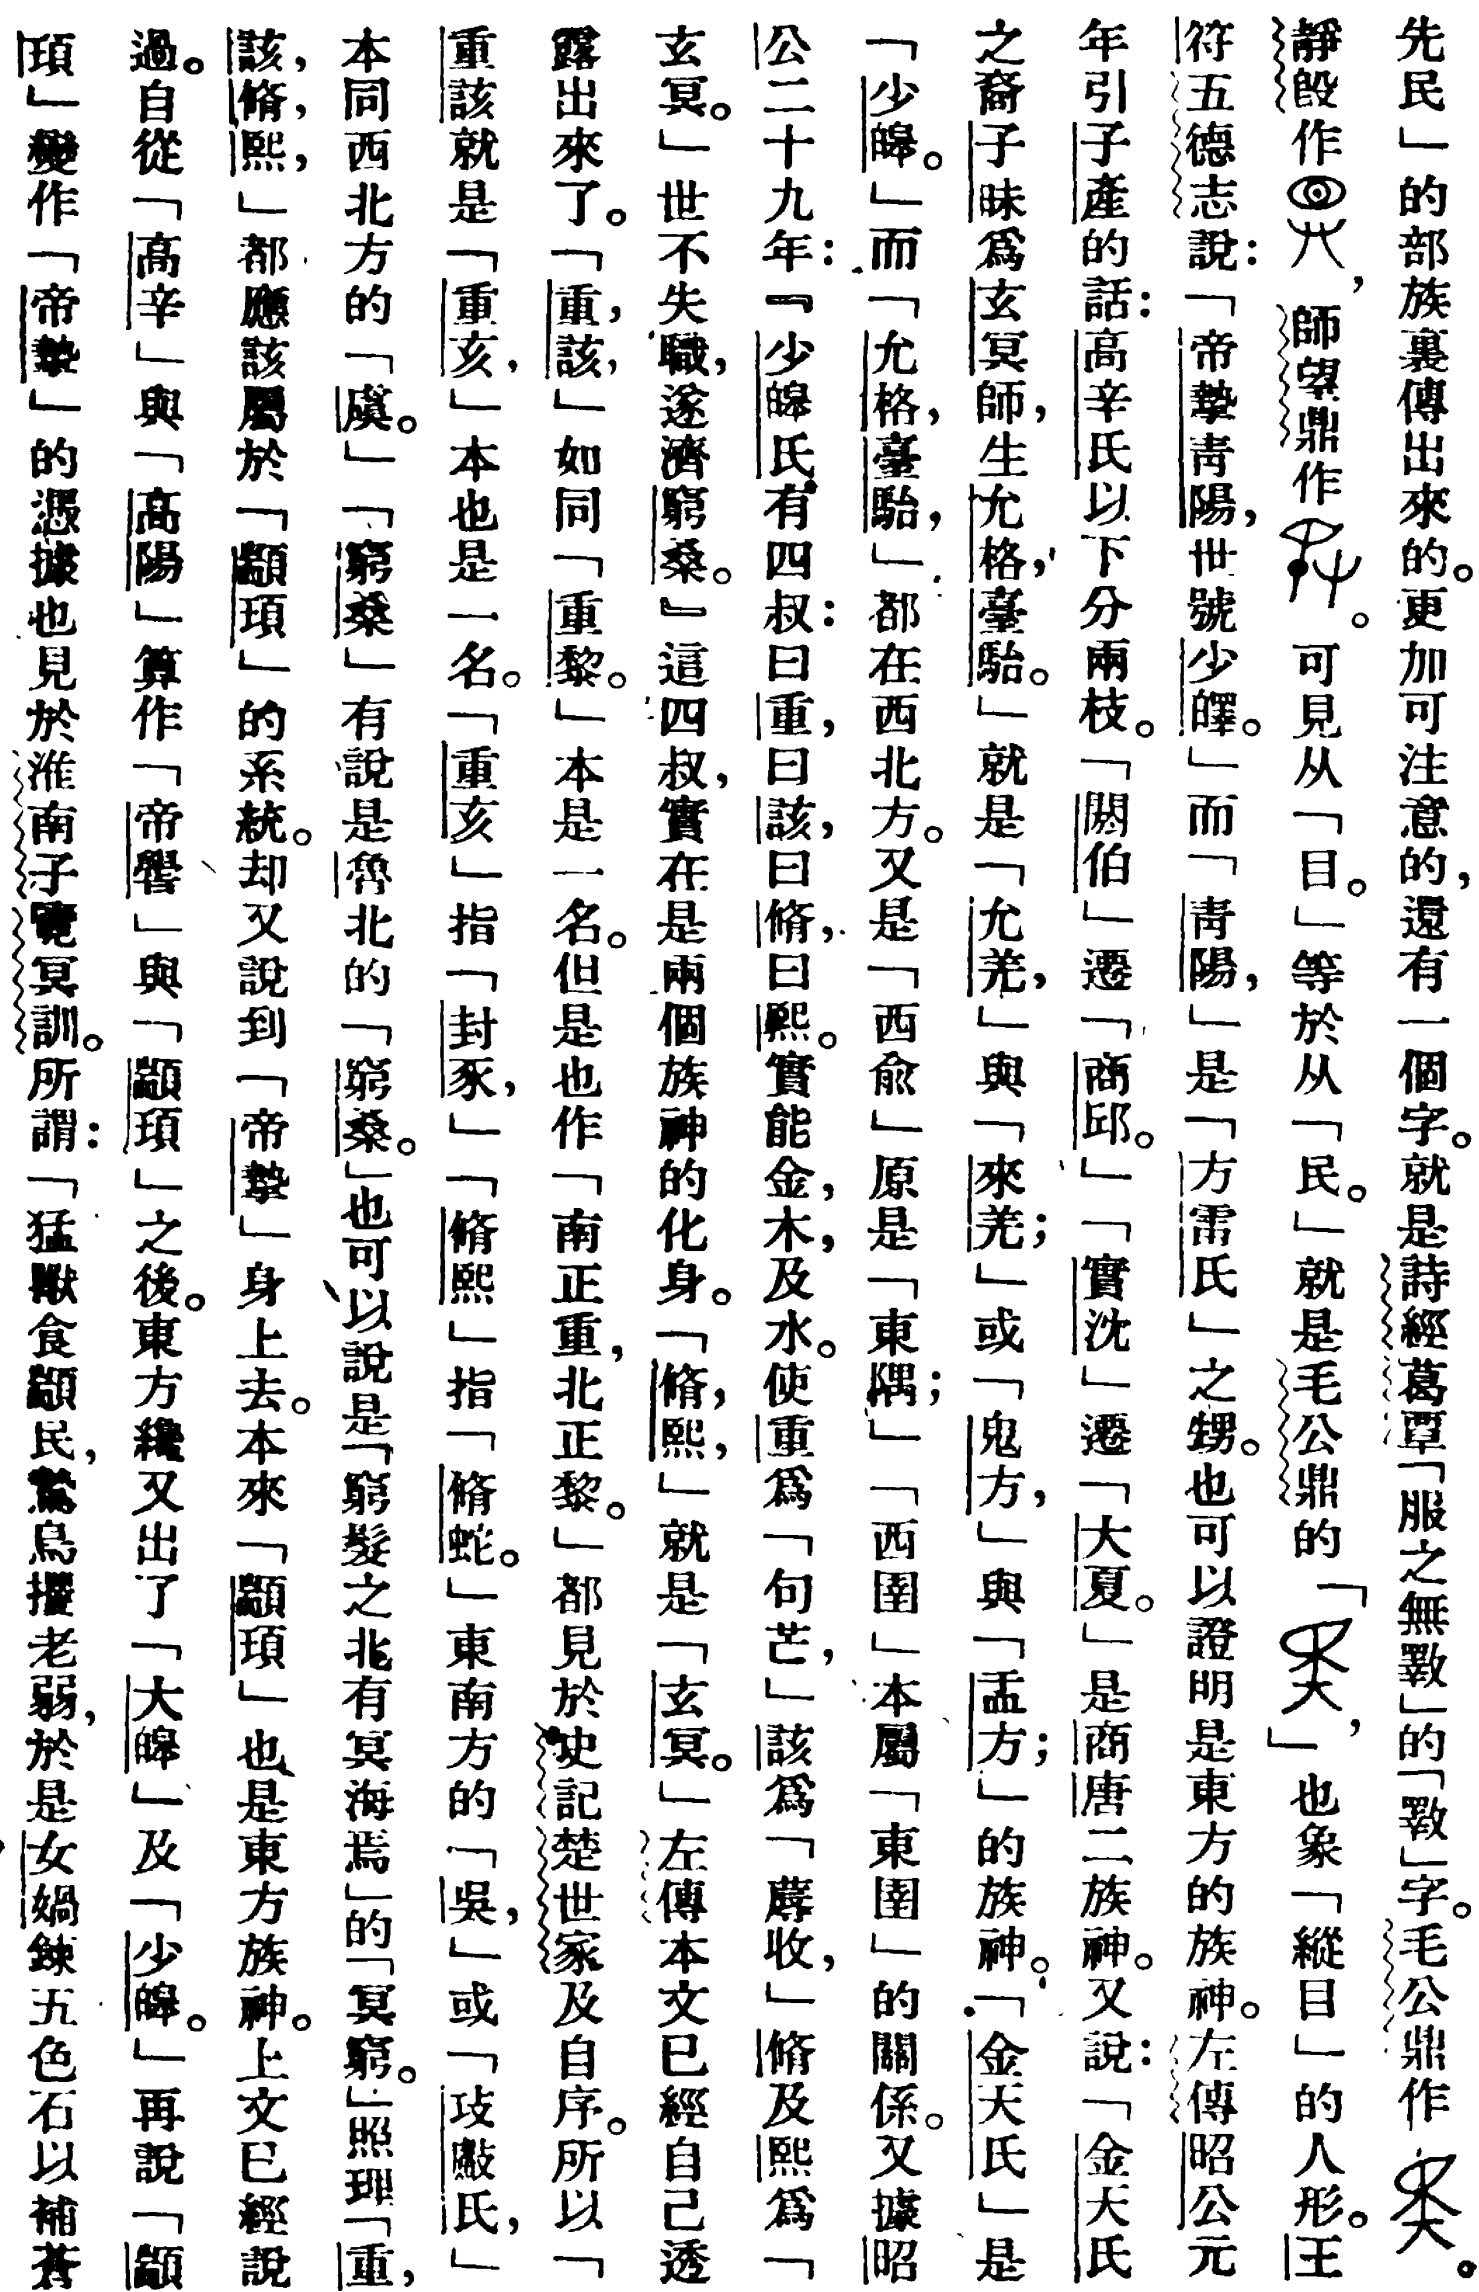 先民」的部族裏傳出來的。更加可注意的，還有一個字。就是詩經葛覃「服之無斁」的「斁」字。毛公鼎作。
靜𣪘作，師望鼎作。可見从「目。」等於从「民。」就是毛公鼎的「，」也象「縱目」的人形。王
符五德志說：「帝摯青陽，世號少皞。」而「青陽，」是「方雷氏」之甥。也可以證明是東方的族神。左傳昭公元
年引子產的話：高辛氏以下分兩枝。「閼伯」遷「商邱。」「實沈」遷「大夏。」是商唐二族神。又說：「金天氏
之裔子昧爲玄冥師，生允格，臺駘。」就是「允羌，」與「來羌；」或「鬼方，」與「盂方；」的族神。「金天氏」是
「少皞。」而「允格，臺駘，」都在西北方。又是「西俞」原是「東隅；」「西圉」本屬「東圉」的關係。又據昭
公二十九年：『少皞氏有四叔：曰重，曰該，曰脩，曰熙。實能金，木，及水。使重爲「句芒，」該爲「蓐收，」脩及熙爲「
玄冥。」世不失職，遂濟窮桑。』這四叔，實在是兩個族神的化身。「脩，熙，」就是「玄冥。」左傳本文已經自己透
露出來了。「重，該，」如同「重黎。」本是一名。但是也作「南正重，北正黎。」都見於史記楚世家及自序。所以「
重該就是「重亥，」本也是一名。「重亥」指「封豕，」「脩熙」指「脩蛇。」東南方的「吳，」或「䱷𩼪氏，」
本同西北方的「虞。」「窮桑」有說是魯北的「窮桑。」也可以說是「窮髮之北有冥海焉」的「冥窮。」照理「重，
該，脩，熙，」都應該屬於「顓頊」的系統。却又說到「帝摯」身上去。本來「顓頊」也是東方族神。上文已經說
過。自從「高辛」與「高陽」算作「帝嚳」與「顓頊」之後。東方纔又出了「大皞」及「少皞。」再說「顓
頊」變作「帝摯」的憑據也見於淮南子覽冥訓。所謂：「猛獸食顓民，鷙鳥攫老弱，於是女媧鍊五色石以補蒼